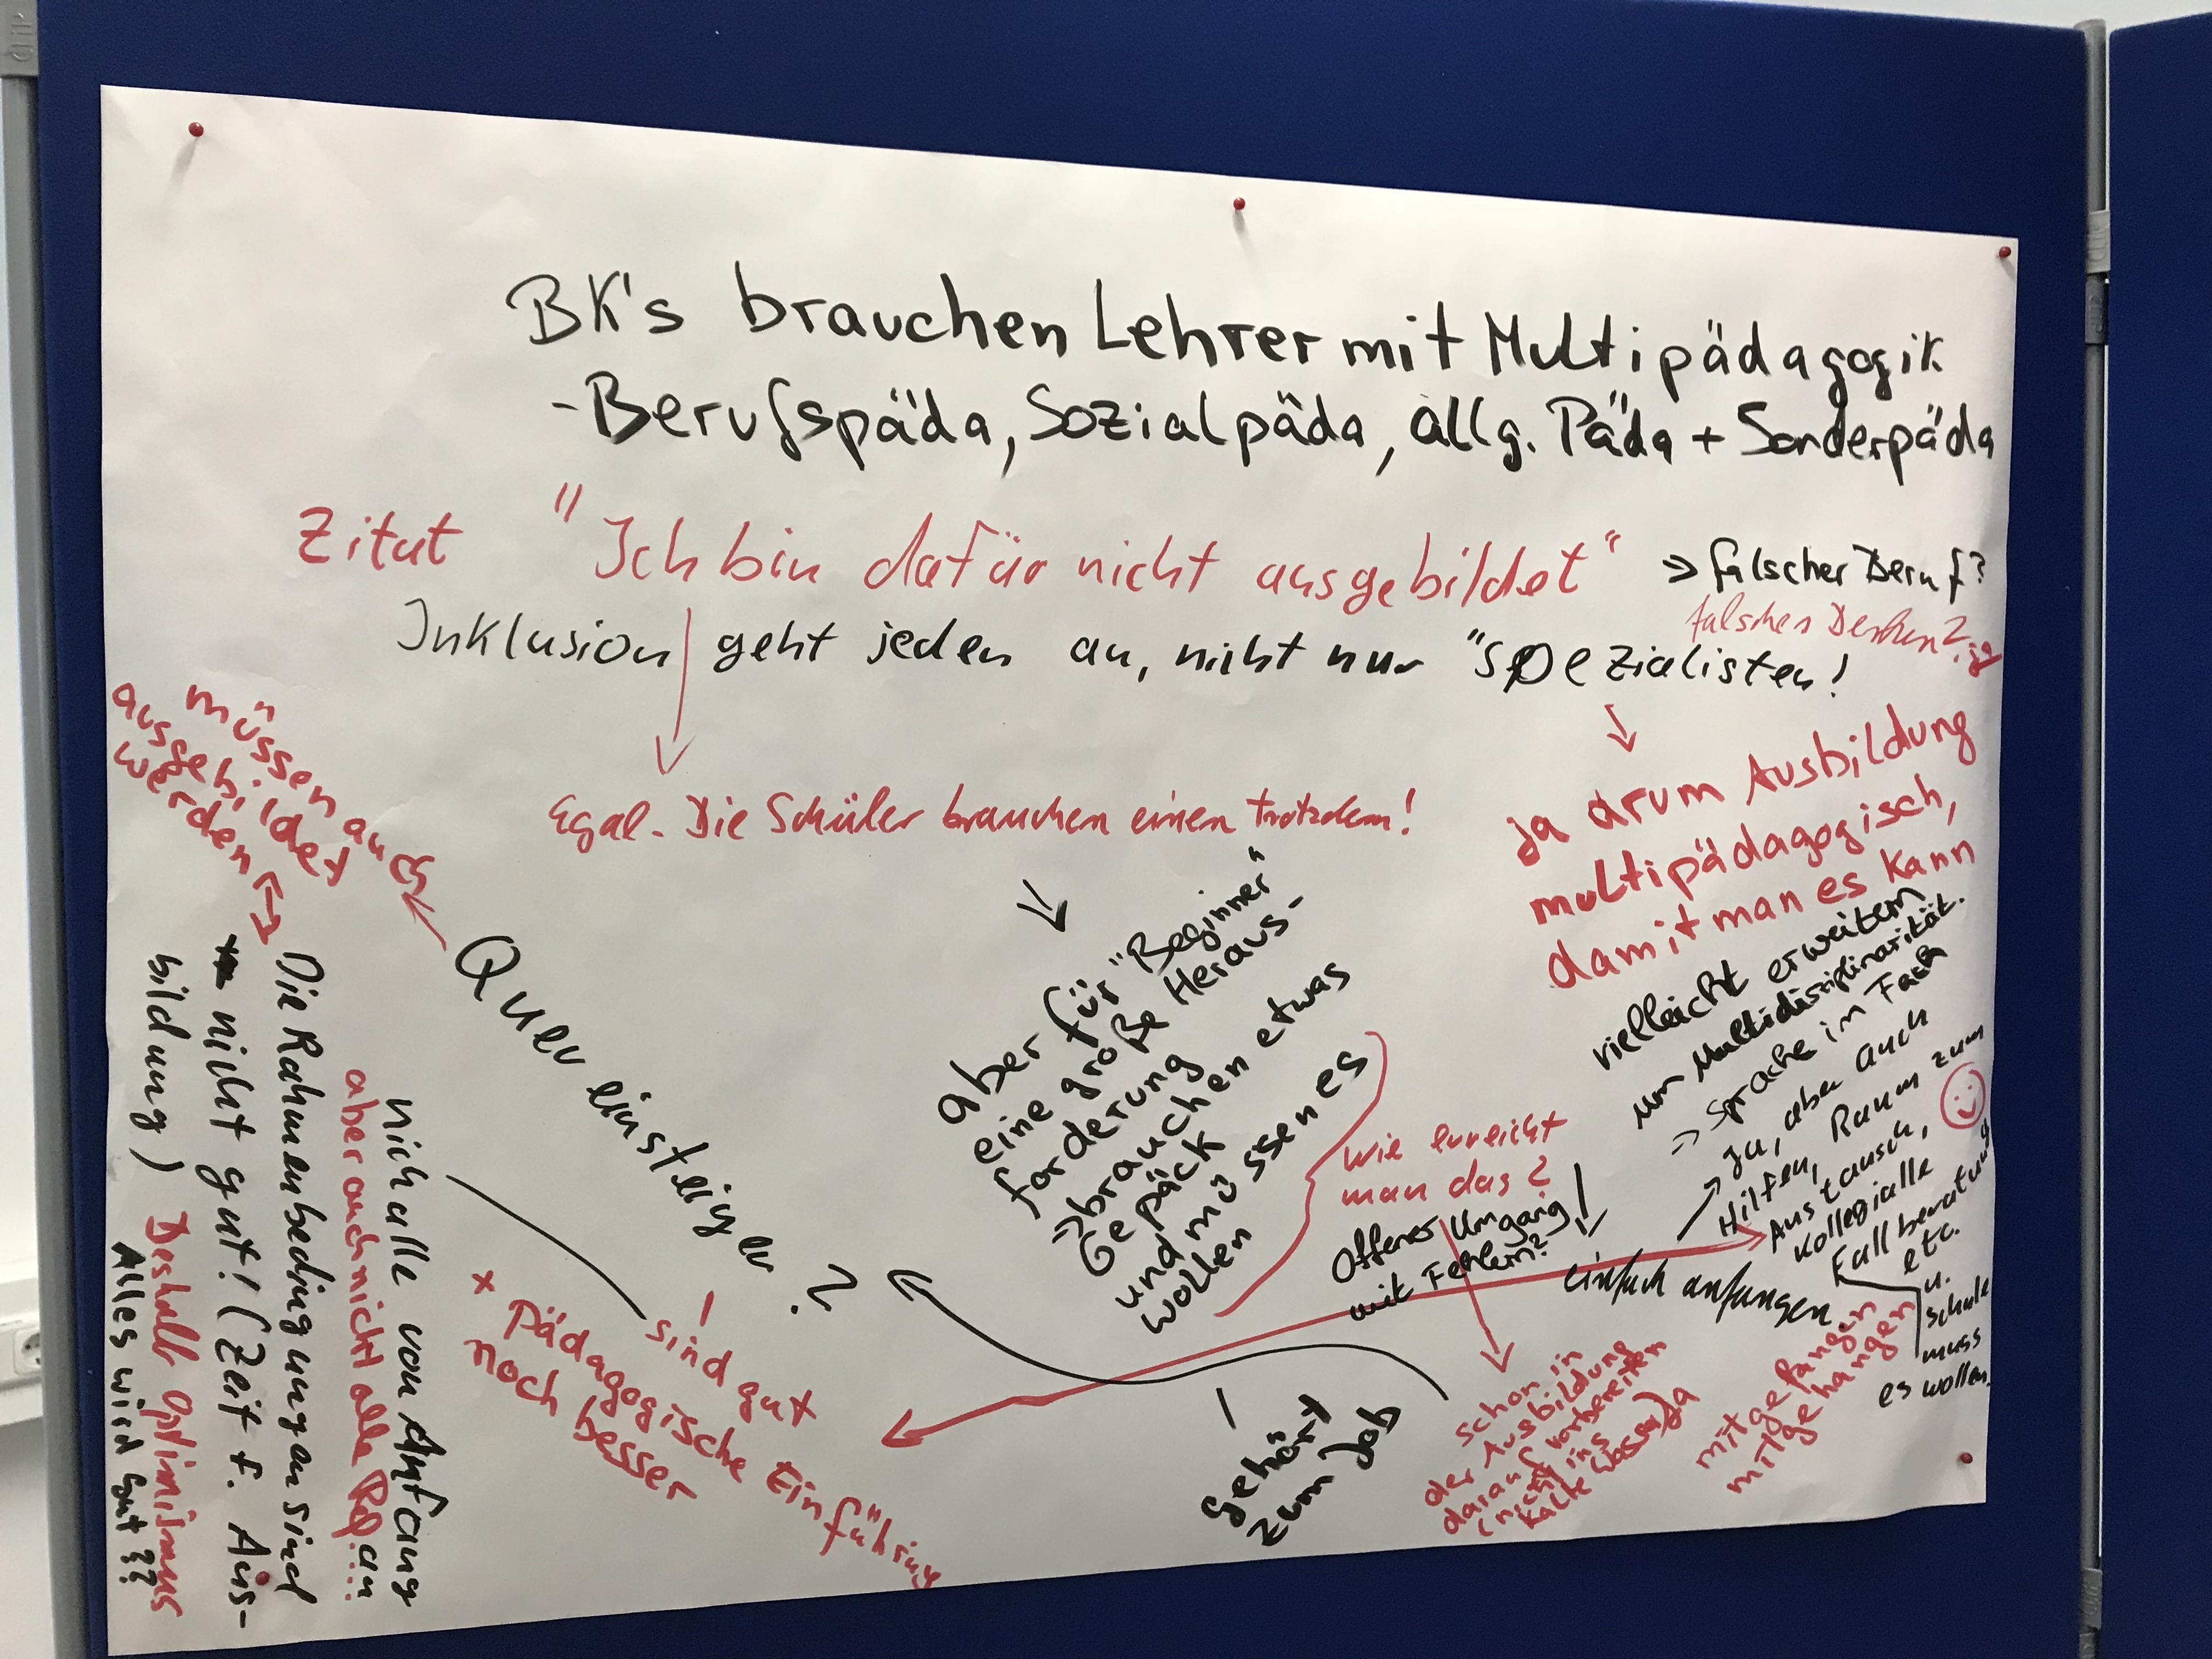 BK's brauchen Lehrer mit Multipädagogik
-Berufspäda, Sozialpäda, allg. Päda + Sonderpäda
Zitat "Ich bin dafür nicht ausgebildet"
⇒ falscher Beruf?
falsches Denken?
Inklusion geht jeden an, nicht nur "Spezialisten!
Egal. Die Schüler brauchen einen trotzdem!
ja drum Ausbildung
multipädagogisch,
damit man es kann
vielleicht erweitern
um Multidisziplinarität.
⇒ Sprache im Fach
Ja, aber auch
Hilfen, Raum zum
Austausch,
kollegialle
Fallberatung
etc.
u.
Schule
muss
es wollen.
aber für "Beginner"
eine große Heraus-
forderung
⇒brauchen etwas
Gepäck
und müssen es
wollen
wie erreicht
man das?
Offener Umgang
mit Fehlern?
!
einfach anfangen
mitgefangen
mitgehangen
schon in
der Ausbildung
darauf vorbereiten
(nicht ins
kalte Wasser)
Ja
gehört
zum Job
Quereinsteiger?
müssen auch
ausgebildet
werden
! sind gut
+ Pädagogische Einführung
noch besser
nich alle von Anfang an
aber auch nicht alle
Die Rahmenbedingungen sind
nicht gut! (Zeit f. Aus-
bildung)
Deshalb Optimismus
Alles wird gut??